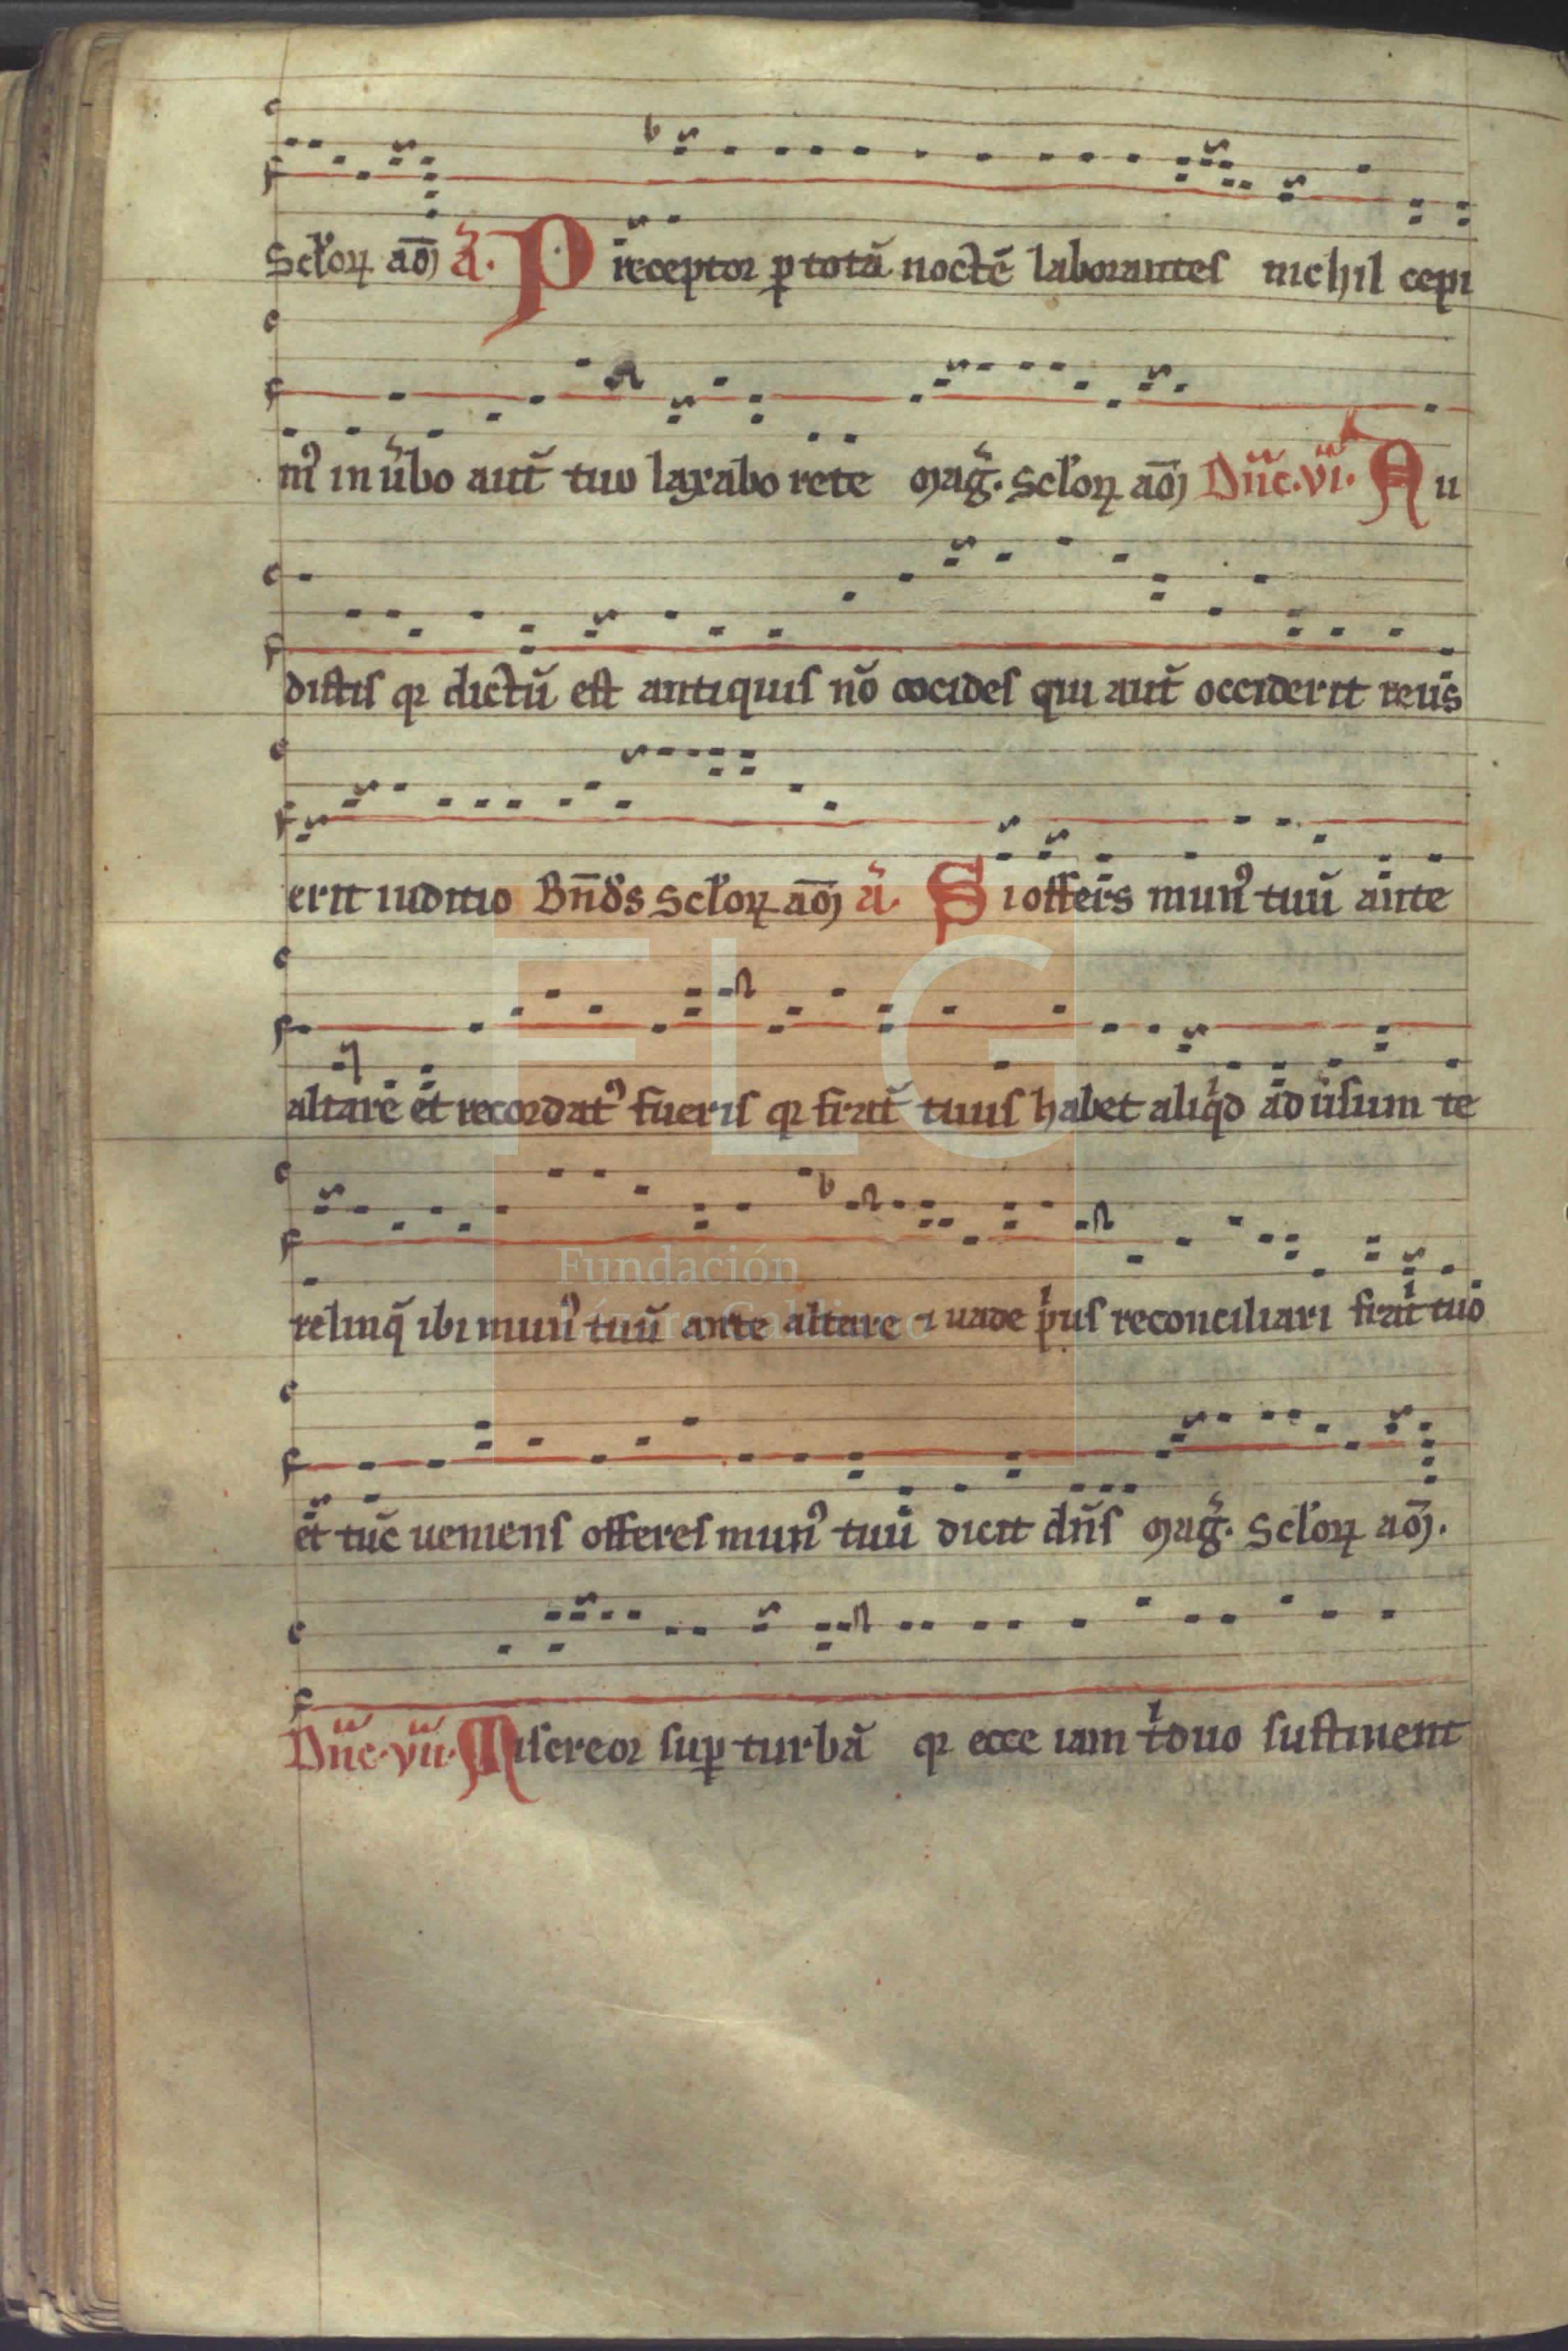 Scl'oꝝ am̄ a̅. Preceptor ꝑ totā noctē laborantes nichil cepi
mꝰ in ủbo aut̄ tuo laxabo rete Mag̃. Scl'oꝝ am̄ Dñc. vi. Au
distis qꝛ dictū est antiquis nō occides qui aut̄ occiderit reus
erit iuditio Bn̄ds Scl'oꝝ am̄ a̅. Si offers munꝰ tuū ante
altare et recordatꝰ fueris qꝛ frat̄ tuus habet aliqͥd aduersum te
relinq̄ ibi munꝰ tuū ante altare ⁊ uade pͥus reconciliari frat̄ tuo
et tūc ueniens offeres munꝰ tuū dicit dn̄s Mag̃. Scl'oꝝ am̄.
Dñc. vii. Misereor suꝑ turbā qꝛ ecce iam tͥduo sustinent
FLG
Fundación
Lázaro Galdiano